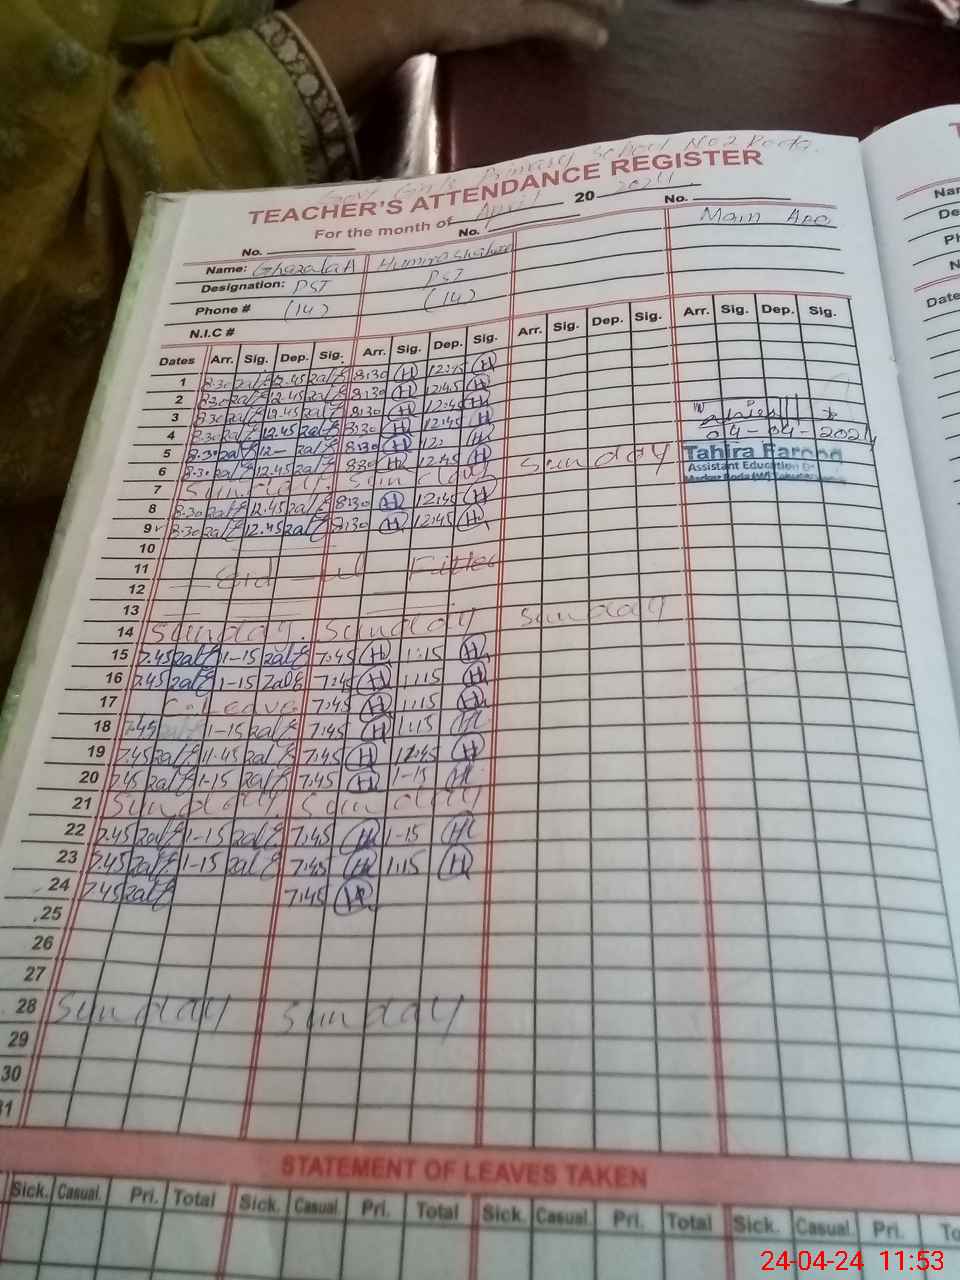 Govt Girls Primary School No 2 Roda.
TEACHER'S ATTENDANCE REGISTER
For the month of April 20 2024
No. No. No.
Name: Ghazala A Humira Main
Designation: PST PST
Phone # (14) (14)
N.I.C #
Dates Arr. Sig. Dep. Sig. Arr. Sig. Dep. Sig. Arr. Sig. Dep. Sig. Arr. Sig. Dep. Sig.
1 8.30 zalf 12.45 zalf 8:30 H 12:45 H
2 8.30 zalf 12.45 zalf 8:30 H 12:45 H
3 8.30 zalf 12.45 zalf 8:30 H 12:45 H
4 8.30 zalf 12.45 zalf 8:30 H 12:45 H 04-04-2024
5 8.30 zalf 12- zalf 8:30 H 12: H
6 8.30 zalf 12.45 zalf 8:30 H 12:45 H
7 Sunday. Sunday Sunday
Tahira Farooq
Assistant Education
8 8.30 zalf 12.45 zalf 8:30 H 12:45 H
9 8.30 zalf 12.45 zalf 8:30 H 12:45 H
10
11 Eid - ul Fitter
12
13
14 Sunday. Sunday Sunday
15 7.45 zalf 1-15 zalf 7:45 H 1:15 H
16 7.45 zalf 1-15 zalf 7:45 H 1:15 H
17 C. Leave 7:45 H 1:15 H
18 7.45 zalf 1-15 zalf 7:45 H 1:15 H
19 7.45 zalf 11.45 zalf 7:45 H 12:45 H
20 7.45 zalf 1-15 zalf 7:45 H 1-15 H
21 Sunday. Sunday
22 7.45 zalf 1-15 zalf 7:45 H 1-15 H
23 7.45 zalf 1-15 zalf 7:45 H 1:15 H
24 7.45 zalf 7:45 H
25
26
27
28 Sunday Sunday
29
30
31
STATEMENT OF LEAVES TAKEN
Sick. Casual. Pri. Total Sick. Casual. Pri. Total Sick. Casual. Pri. Total Sick. Casual. Pri.
24-04-24 11:53